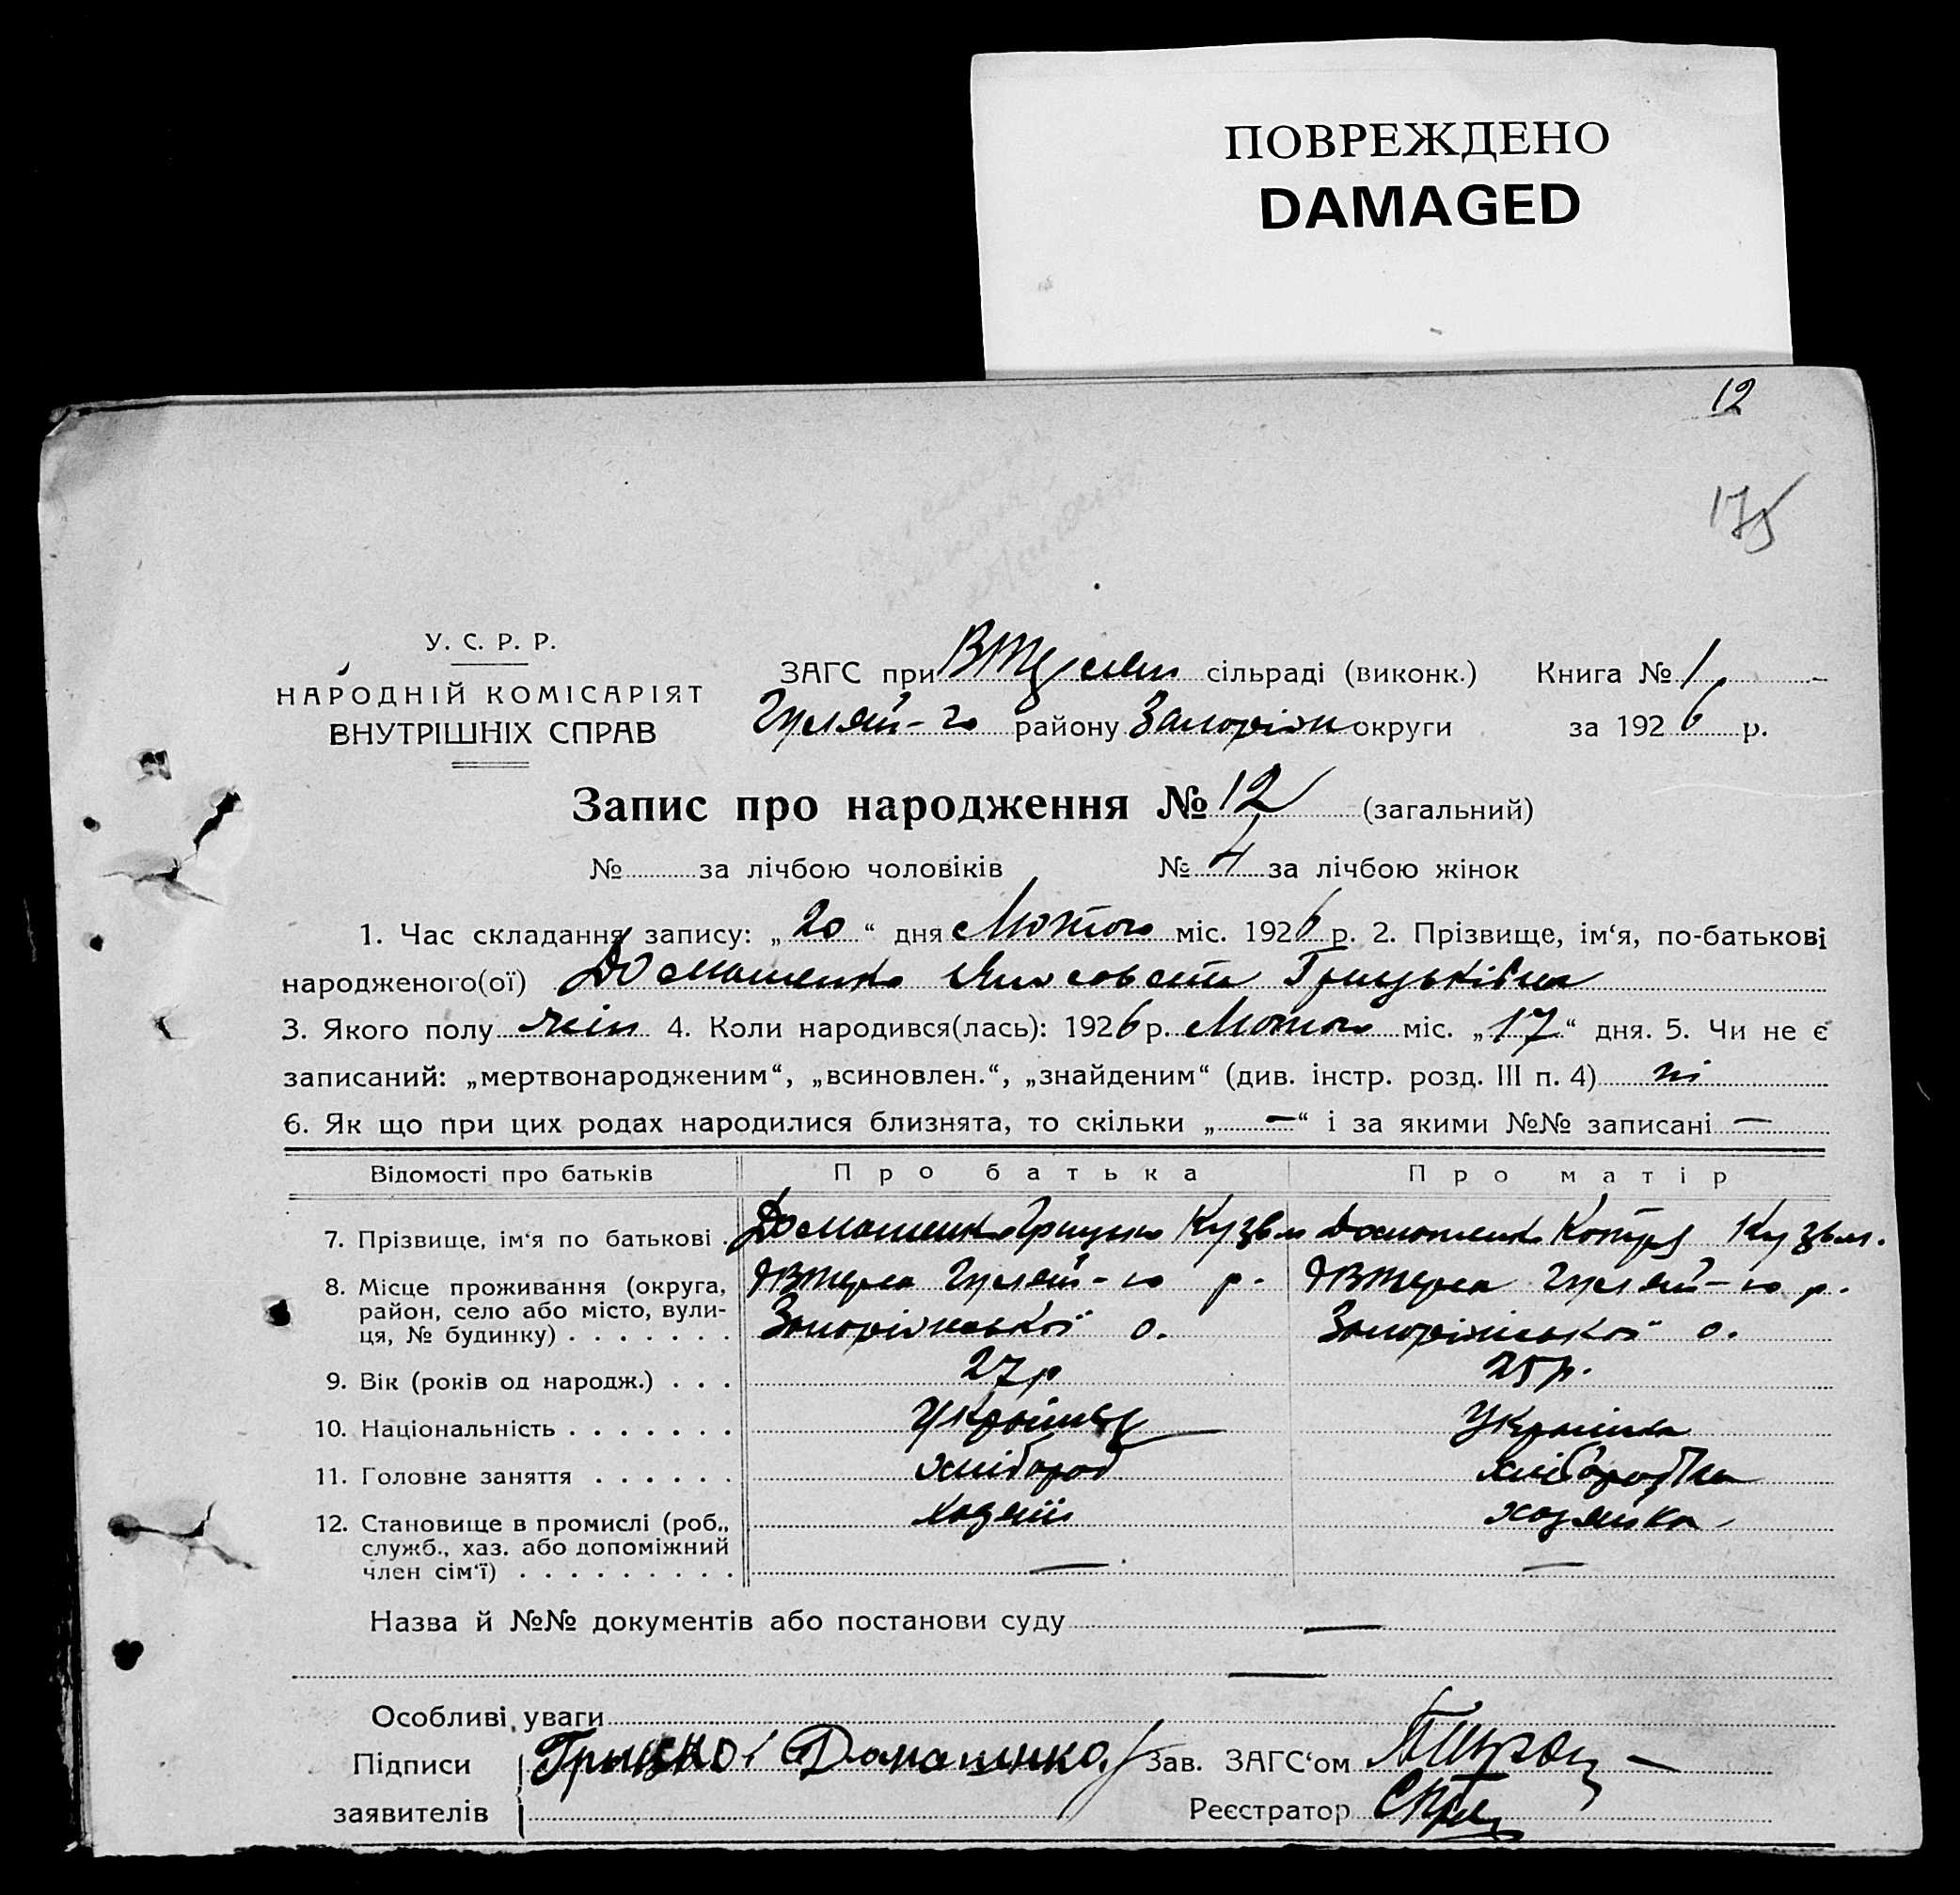 ПОВРЕЖДЕНО
DAMAGED
12
175
У. С. Р. Р.
НАРОДНІЙ КОМІСАРІЯТ
ВНУТРІШНІХ СПРАВ
ЗАГС при сільраді (виконк.) Книга № 1
Гуляй-го району Запоріжж округи за 1926 р.
Запис про народження № 12 (загальний)
№ за лічбою чоловіків № 4 за лічбою жінок
1. Час складання запису: „20“ дня Лютого міс. 1926 р. 2. Прізвище, ім‘я, по-батькові
народженого(ої) Домашенко Грицьківна
3. Якого полу жін 4. Коли народився(лась): 1926 р. Лютого міс. „17“ дня. 5. Чи не є
записаний: „мертвонародженим“, „всиновлен.“, „знайденим“ (див. інстр. розд. III п. 4) ні
6. Як що при цих родах народилися близнята, то скільки „—“ і за якими №№ записані —
Відомості про батьків Про батька Про матір
7. Прізвище, ім‘я по батькові . Домашенко Грицько Кузьм Домашенко Кузьм.
8. Місце проживання (округа, Гуляй-го р. Гуляй-го р.
район, село або місто, вули-
ця, № будинку) . . . . . . . Запоріжської о. Запоріжської о.
9. Вік (років од народж.) . . . 27 р 25 р.
10. Національність . . . . . . . Українець Українка
11. Головне заняття . . . . . . хлібороб хліборобка
12. Становище в промислі (роб., хазяїн хазяйка
служб., хаз. або допоміжний
член сім‘ї) . . . . . . . . . — —
Назва й №№ документів або постанови суду —
—
Особливі уваги
Підписи Грицько Домашенко Зав. ЗАГС‘ом
заявителів Реєстратор